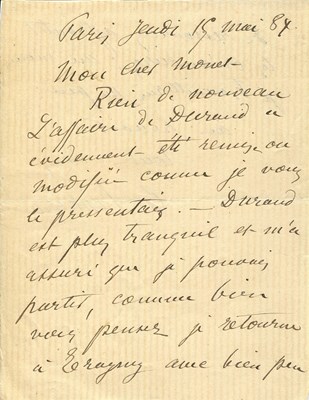 Paris Jeudi 15 mai 84.
Mon cher Monet
Rien de nouveau
L'affaire de Durand a
évidement été remise ou
modifiée comme je vous
le pressentais. — Durand
est plus tranquil et m'a
assuré que je pouvais
partir, comme bien
vous pensez je retourne
à Eragny avec bien peu